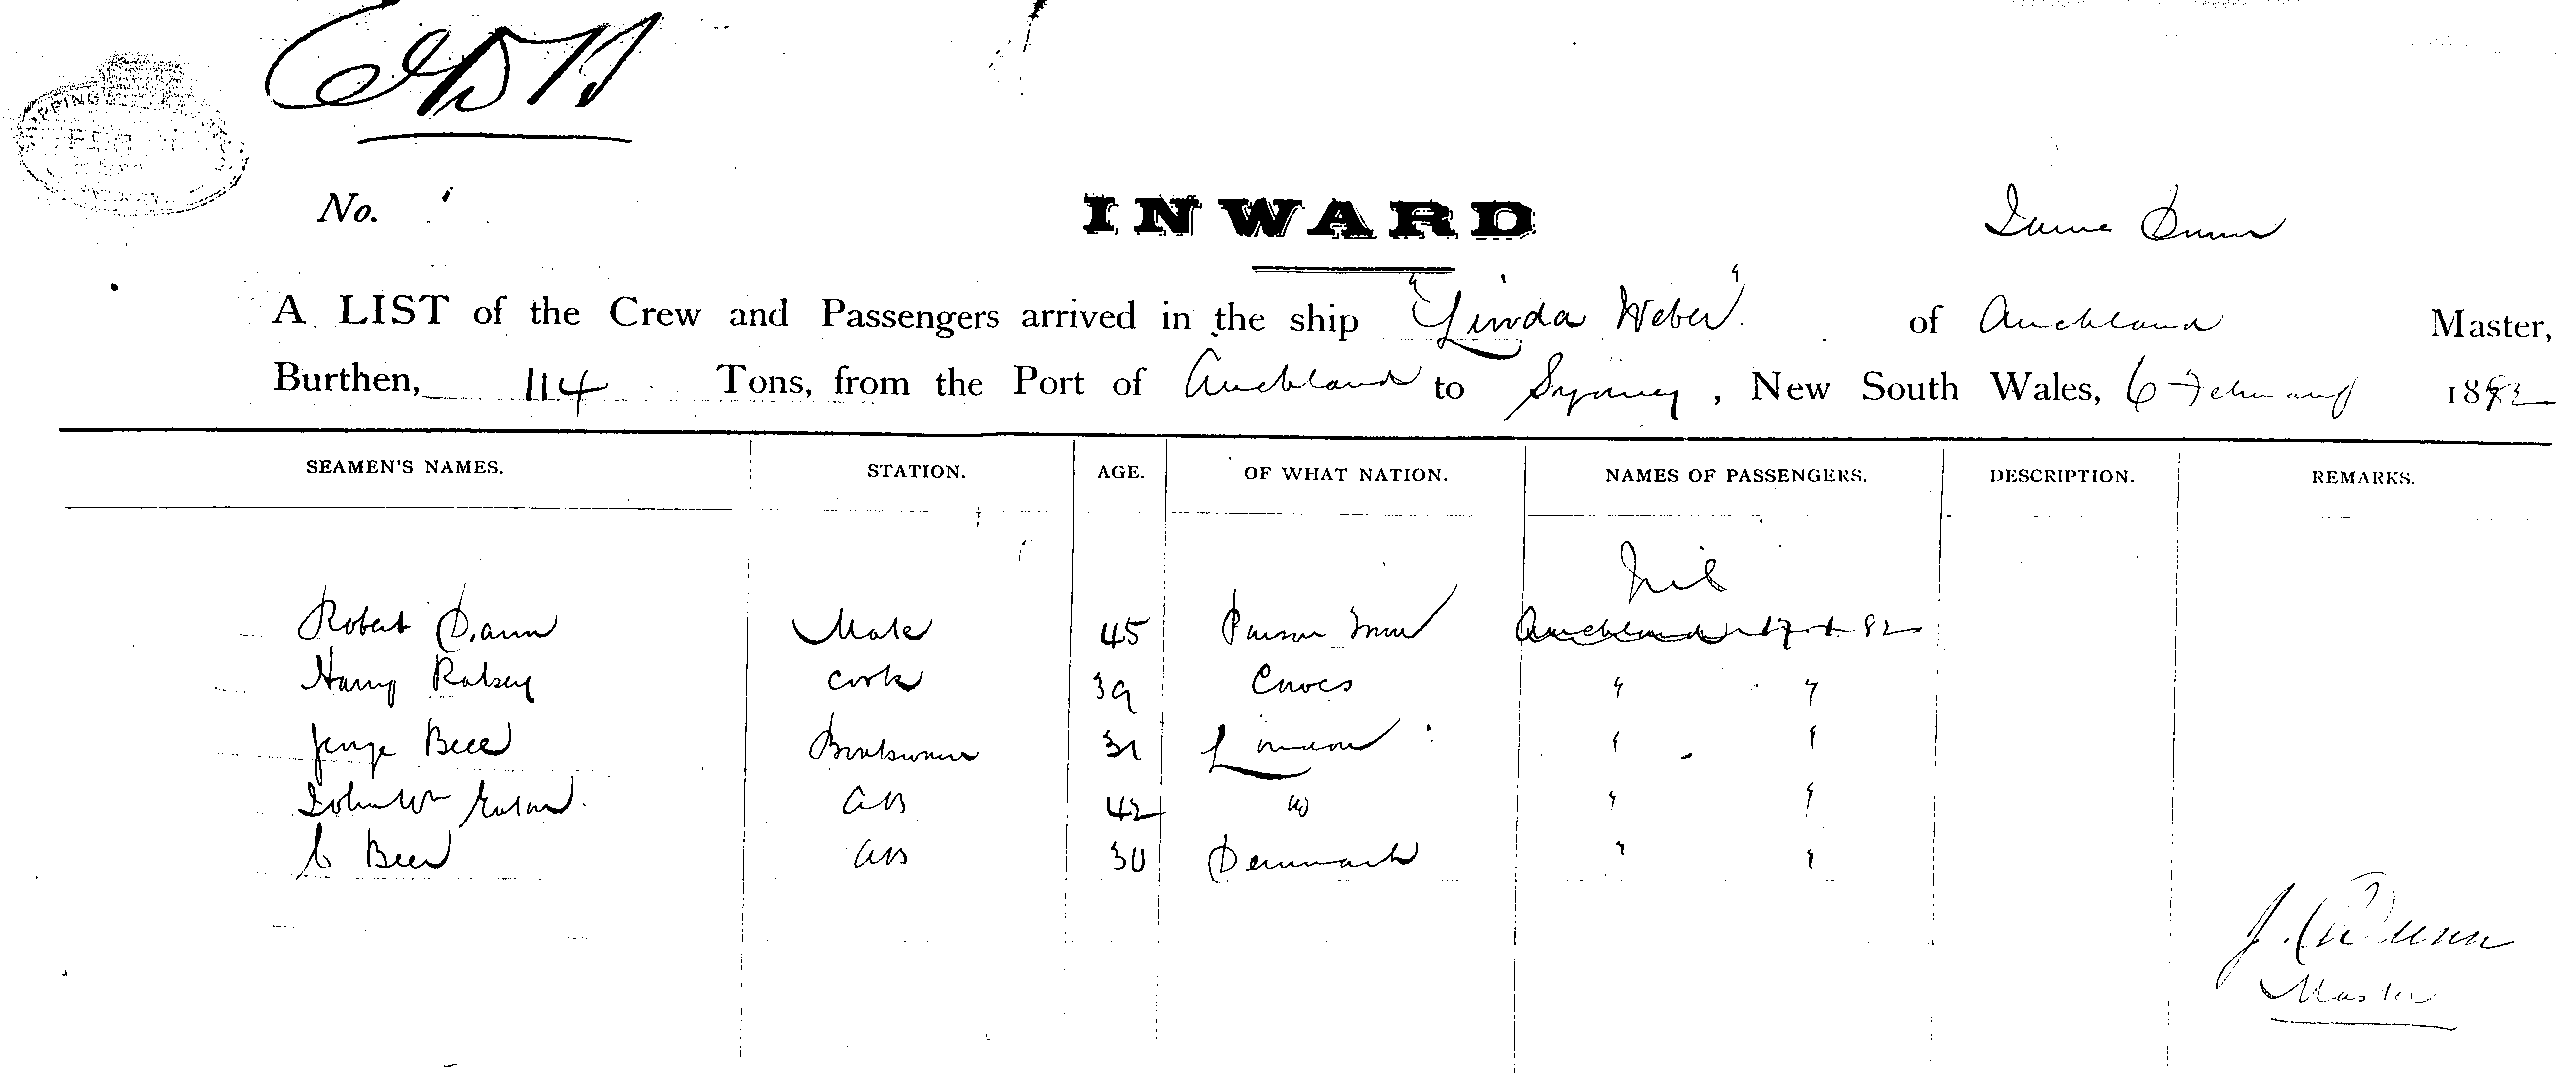 No.
INWARD
James Dunn
A LIST of the Crew and Passengers arrived in the ship "Linda Weber" of Auckland Master,
Burthen, 114 Tons, from the Port of Auckland to Sydney, New South Wales, 6 February 1882
SEAMEN'S NAMES. STATION. AGE. OF WHAT NATION. NAMES OF PASSENGERS. DESCRIPTION. REMARKS.
Nil
Robert Dann Mate 45 Auckland 17 1 82
Harry Ratsey Cook 39 Cowes " "
Beer Boatswain 31 London " "
John Wm AB 42 " "
C Beer AB 30 Denmark " "
Dunn
Master